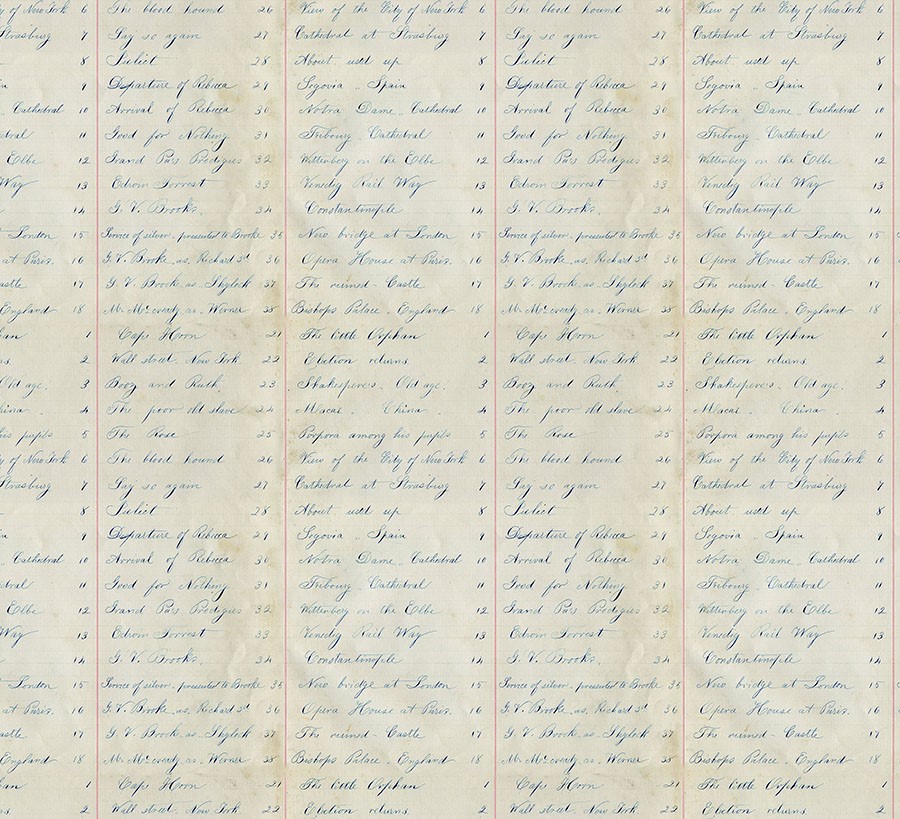 y of New York 6 The blood hound 26 View of the City of New York 6 The blood hound 26 View of the City of New York 6
Strasburg 7 Say so again 27 Cathedral at Strasburg 7 Say so again 27 Cathedral at Strasburg 7
8 Juliet 28 About used up 8 Juliet 28 About used up 8
9 Departure of Rebecca 29 Segovia .. Spain 9 Departure of Rebecca 29 Segovia .. Spain 9
Cathedral 10 Arrival of Rebecca 30 Notra Dame.. Cathedral 10 Arrival of Rebecca 30 Notra Dame.. Cathedral 10
dral 11 Good for Nothing 31 Fribourg. Cathedral 11 Good for Nothing 31 Fribourg. Cathedral 11
Elbe 12 Grand Pa's Prodigies 32 Wittenberg on the Elbe 12 Grand Pa's Prodigies 32 Wittenberg on the Elbe 12
Way 13 Edwin Forrest 33 Venedig Rail Way 13 Edwin Forrest 33 Venedig Rail Way 13
14 G. V. Brooke. 34 Constantinople 14 G. V. Brooke. 34 Constantinople 14
London 15 Service of silver. presented to Brooke 35 New bridge at London 15 Service of silver. presented to Brooke 35 New bridge at London 15
at Paris. 16 G.V. Brooke. as. Richard 3d 36 Opera House at Paris. 16 G.V. Brooke. as. Richard 3d 36 Opera House at Paris. 16
astle 17 G. V. Brooke as Shylock 37 The ruined Castle 17 G. V. Brooke as Shylock 37 The ruined Castle 17
England 18 Mr. McCready as. Werner 38 Bishops Palace. England 18 Mr. McCready as. Werner 38 Bishops Palace. England 18
han 1 Cape Horn 21 The little Orphan 1 Cape Horn 21 The little Orphan 1
2 Wall street. New York 22 Election returns 2 Wall street. New York 22 Election returns 2
Old age. 3 Booz and Ruth. 23 Shakesperes. Old age. 3 Booz and Ruth. 23 Shakesperes. Old age. 3
hina. 4 The poor old slave 24 Macai. China. 4 The poor old slave 24 Macai. China. 4
his pupils 5 The Rose 25 Porpora among his pupils 5 The Rose 25 Porpora among his pupils 5
y of New York 6 The blood hound 26 View of the City of New York 6 The blood hound 26 View of the City of New York 6
Strasburg 7 Say so again 27 Cathedral at Strasburg 7 Say so again 27 Cathedral at Strasburg 7
8 Juliet 28 About used up 8 Juliet 28 About used up 8
9 Departure of Rebecca 29 Segovia .. Spain 9 Departure of Rebecca 29 Segovia .. Spain 9
Cathedral 10 Arrival of Rebecca 30 Notra Dame.. Cathedral 10 Arrival of Rebecca 30 Notra Dame.. Cathedral 10
dral 11 Good for Nothing 31 Fribourg. Cathedral 11 Good for Nothing 31 Fribourg. Cathedral 11
Elbe 12 Grand Pa's Prodigies 32 Wittenberg on the Elbe 12 Grand Pa's Prodigies 32 Wittenberg on the Elbe 12
Way 13 Edwin Forrest 33 Venedig Rail Way 13 Edwin Forrest 33 Venedig Rail Way 13
14 G. V. Brooke. 34 Constantinople 14 G. V. Brooke. 34 Constantinople 14
London 15 Service of silver. presented to Brooke 35 New bridge at London 15 Service of silver. presented to Brooke 35 New bridge at London 15
at Paris. 16 G.V. Brooke. as. Richard 3d 36 Opera House at Paris. 16 G.V. Brooke. as. Richard 3d 36 Opera House at Paris. 16
astle 17 G. V. Brooke as Shylock 37 The ruined Castle 17 G. V. Brooke as Shylock 37 The ruined Castle 17
England 18 Mr. McCready as. Werner 38 Bishops Palace. England 18 Mr. McCready as. Werner 38 Bishops Palace. England 18
han 1 Cape Horn 21 The little Orphan 1 Cape Horn 21 The little Orphan 1
2 Wall street. New York 22 Election returns 2 Wall street. New York. 22 Election returns 2